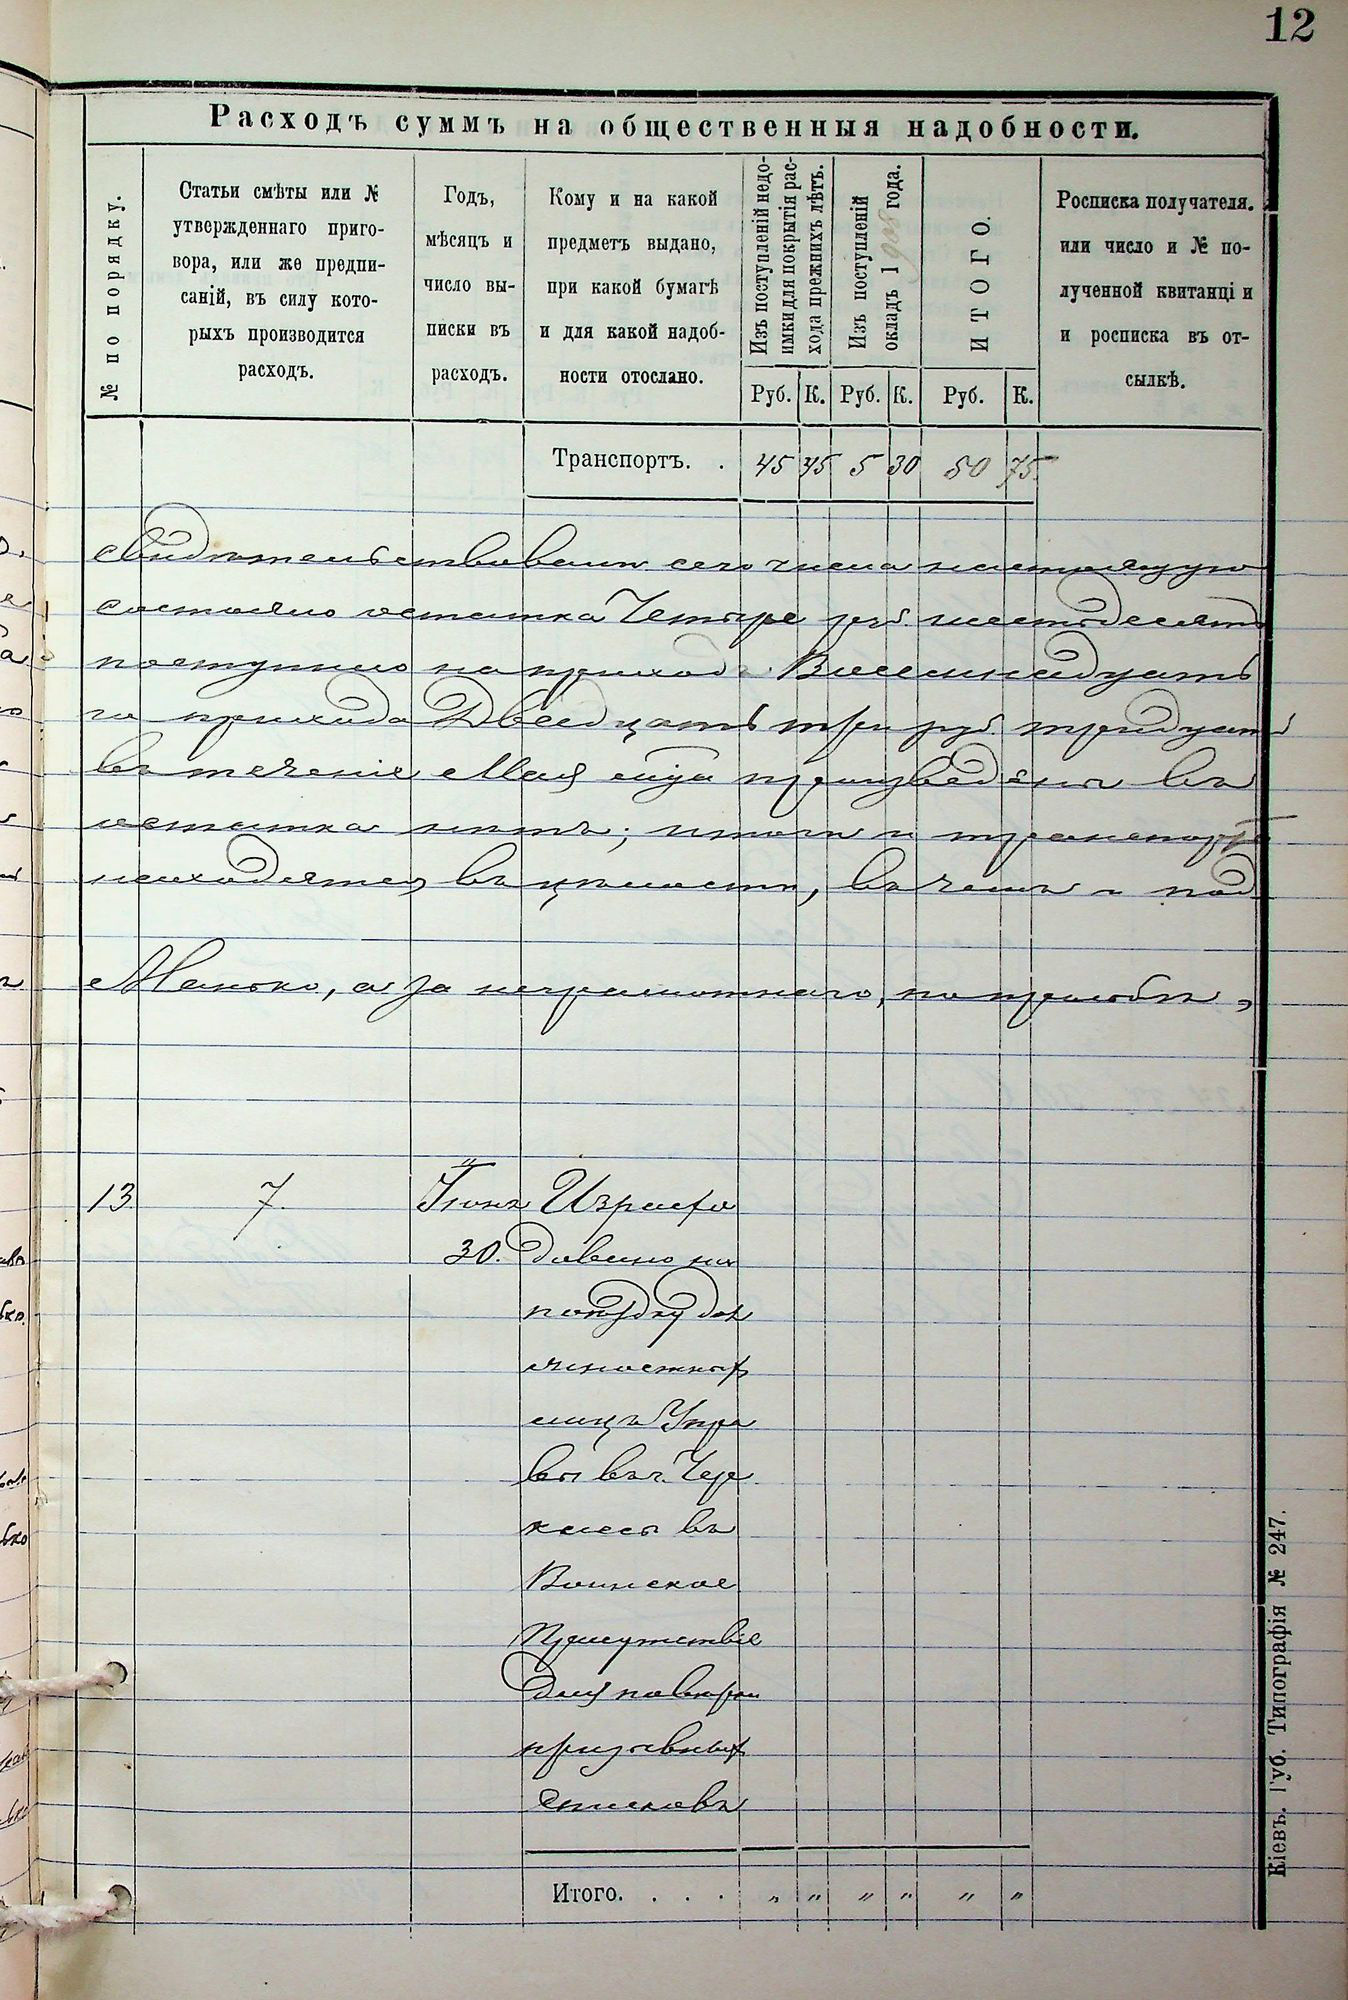 12
Расходъ суммъ на общественныя надобности.
№ по порядку.
Статьи смѣты или №
утвержденнаго приго-
вора, или же предпи-
саній, въ силу кото-
рыхъ производится
расходъ.
Годъ,
мѣсяцъ и
число вы-
писки въ
расходъ.
Кому и на какой
предметъ выдано,
при какой бумагѣ
и для какой надоб-
ности отослано.
Изъ поступленій недо-
имки для покрытія рас-
хода прежнихъ лѣтъ.
Изъ поступленій
окладъ 1908 года.
ИТОГО.
Росписка получателя.
или число и № по-
лученной квитанці и
и росписка въ от-
сылкѣ.
Руб. К. Руб. К. Руб. К.
Транспортъ. . 45 45 5 30 50 75.
свидѣтельствовали сего числа настоящую
состояло остатка Четыре руб. шестьдесятъ
поступило на приходъ Восемнадцать
го прихода Двадцать три руб. тридцать
въ теченіе Мая мѣсяца произведено въ
остатка нѣтъ; итоги и транспорты
находятся въ цѣлости, въ чемъ и под
Манько, а за неграмотнаго, по просьбѣ,
13. 7. Іюнь Израсхо
30. довано на
поѣздку дол
жностныхъ
лицъ Упра
вы въ г. Чер
кассы въ
Воинское
Присутствіе
для повѣрки
призывныхъ
списковъ
Итого. . . . „ „ „ „ „ „
Кіевъ. Губ. Типографія № 247.